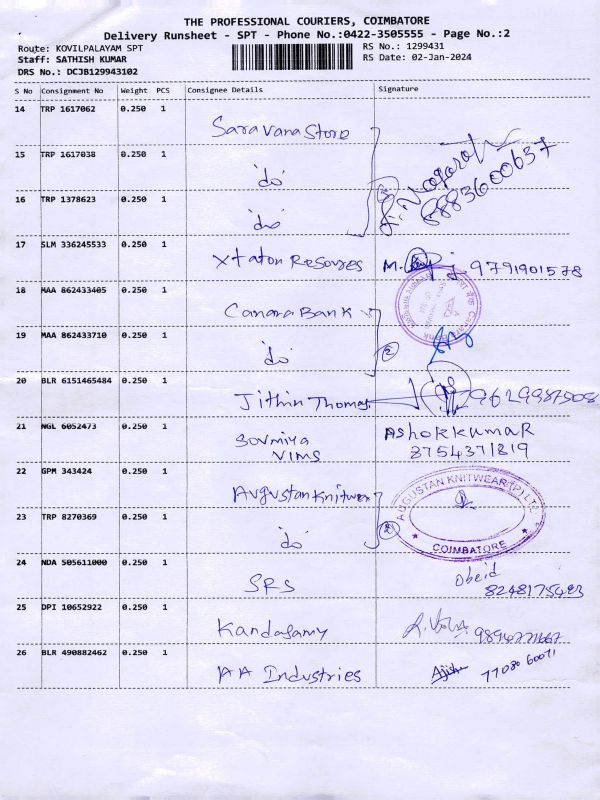 THE PROFESSIONAL COURIERS, COIMBATORE
Delivery Runsheet - SPT - Phone No.:0422-3505555 - Page No.:2
Route: KOVILPALAYAM SPT
RS No.: 1299431
Staff: SATHISH KUMAR
RS Date: 02-Jan-2024
DRS No.: DCJB129943102
S No Consignment No Weight PCS Consignee Details Signature
14 TRP 1617062 0.250 1 Saravana Store
15 TRP 1617038 0.250 1 do
8883600637
16 TRP 1378623 0.250 1 do
17 SLM 336245533 0.250 1 M. 9791901578
18 MAA 862433405 0.250 1 Canara Bank
19 MAA 862433710 0.250 1 do 2
20 BLR 6151465484 0.250 1 Jithin Thomas
21 NGL 6052473 0.250 1 Sowmiya AShokkumaR
VIMS 8754371819
22 GPM 343424 0.250 1 Augustan Knitwear
AUGUSTAN KNITWEAR (P) LTD
23 TRP 8270369 0.250 1 do 2
COIMBATORE
24 NDA 505611000 0.250 1 SRS Obeid
25 DPI 10652922 0.250 1 Kandasamy
26 BLR 490882462 0.250 1 AA Industries 77080 60071